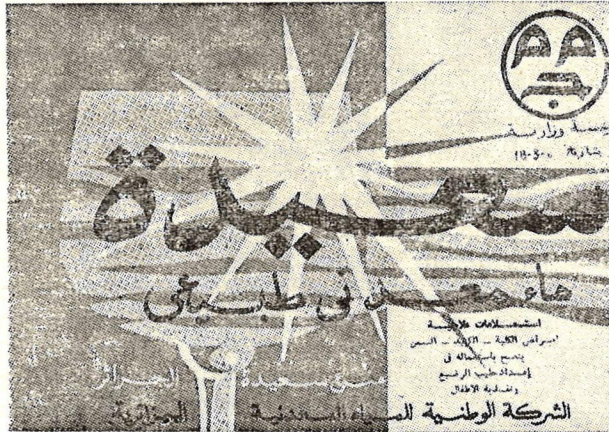 م م ج
رخصة وزارية
بتاريخ
سعيدة
ماء معدني طبيعي
استعمالات علاجية
امراض الكلية - الكبد - السمن
ينصح باستعماله في
إعداد حليب الرضيع
وتغذية الاطفال
سعيدة الجزائر
الشركة الوطنية للمياه المعدنية الجزائرية